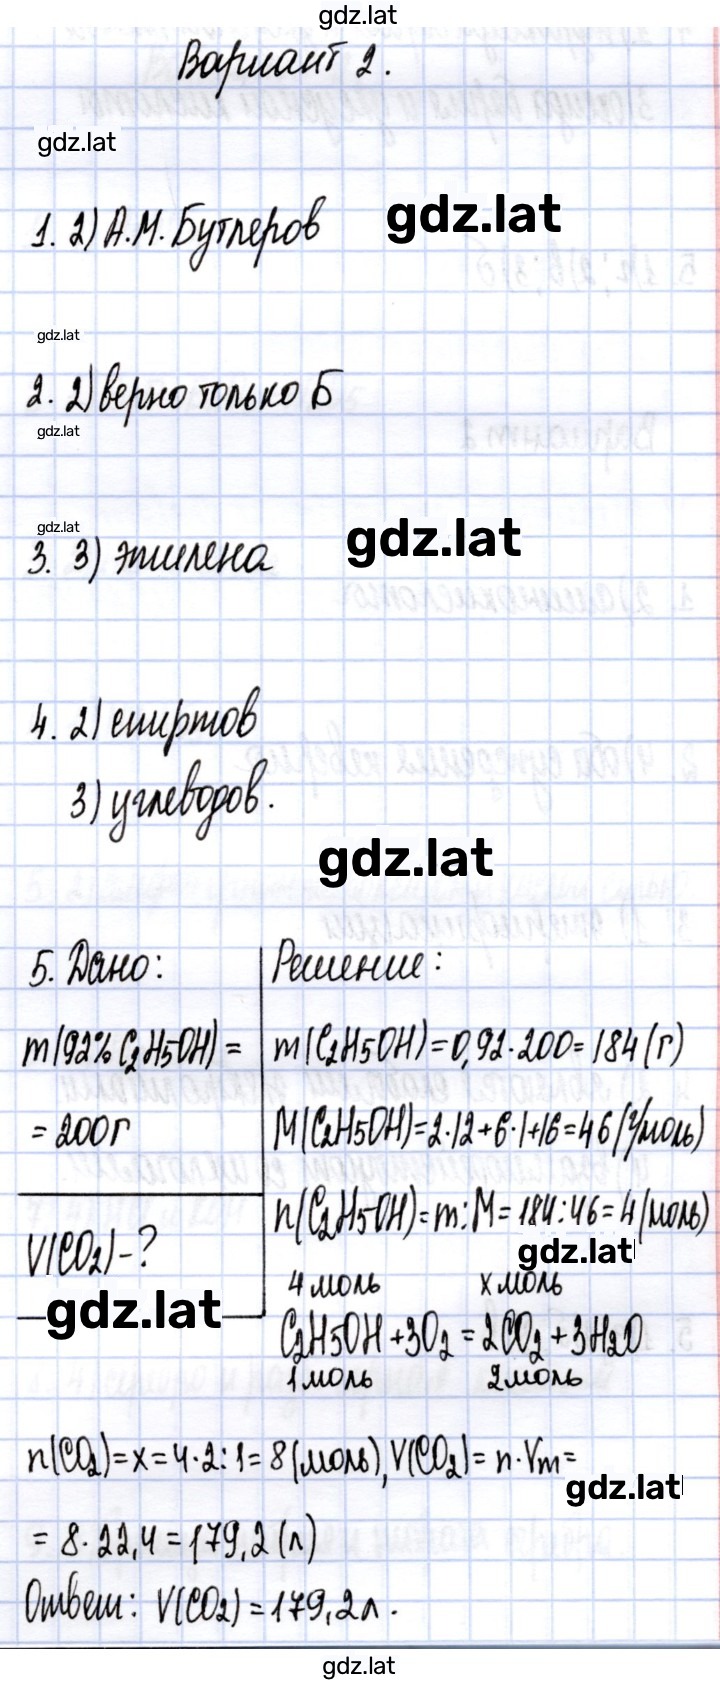 gdz.lat
Вариант 2.
gdz.lat
1. 2) А.М. Бутлеров
gdz.lat
gdz.lat
2. 2) верно только Б
gdz.lat
gdz.lat
gdz.lat
3. 3) этилена
4. 2) спиртов
3) углеводов.
gdz.lat
5. Дано:
m(92% C₂H₅OH) =
= 200г
V(CO₂) - ?
gdz.lat
Решение:
m(C₂H₅OH) = 0,92 · 200 = 184 (г)
M(C₂H₅OH) = 2·12 + 6·1 + 16 = 46 (г/моль)
n(C₂H₅OH) = m : M = 184 : 46 = 4 (моль)
gdz.lat
4 моль x моль
C₂H₅OH + 3O₂ = 2CO₂ + 3H₂O
1 моль 2 моль
n(CO₂) = x = 4 · 2 : 1 = 8 (моль), V(CO₂) = n · Vm =
gdz.lat
= 8 · 22,4 = 179,2 (л)
Ответ: V(CO₂) = 179,2 л.
gdz.lat